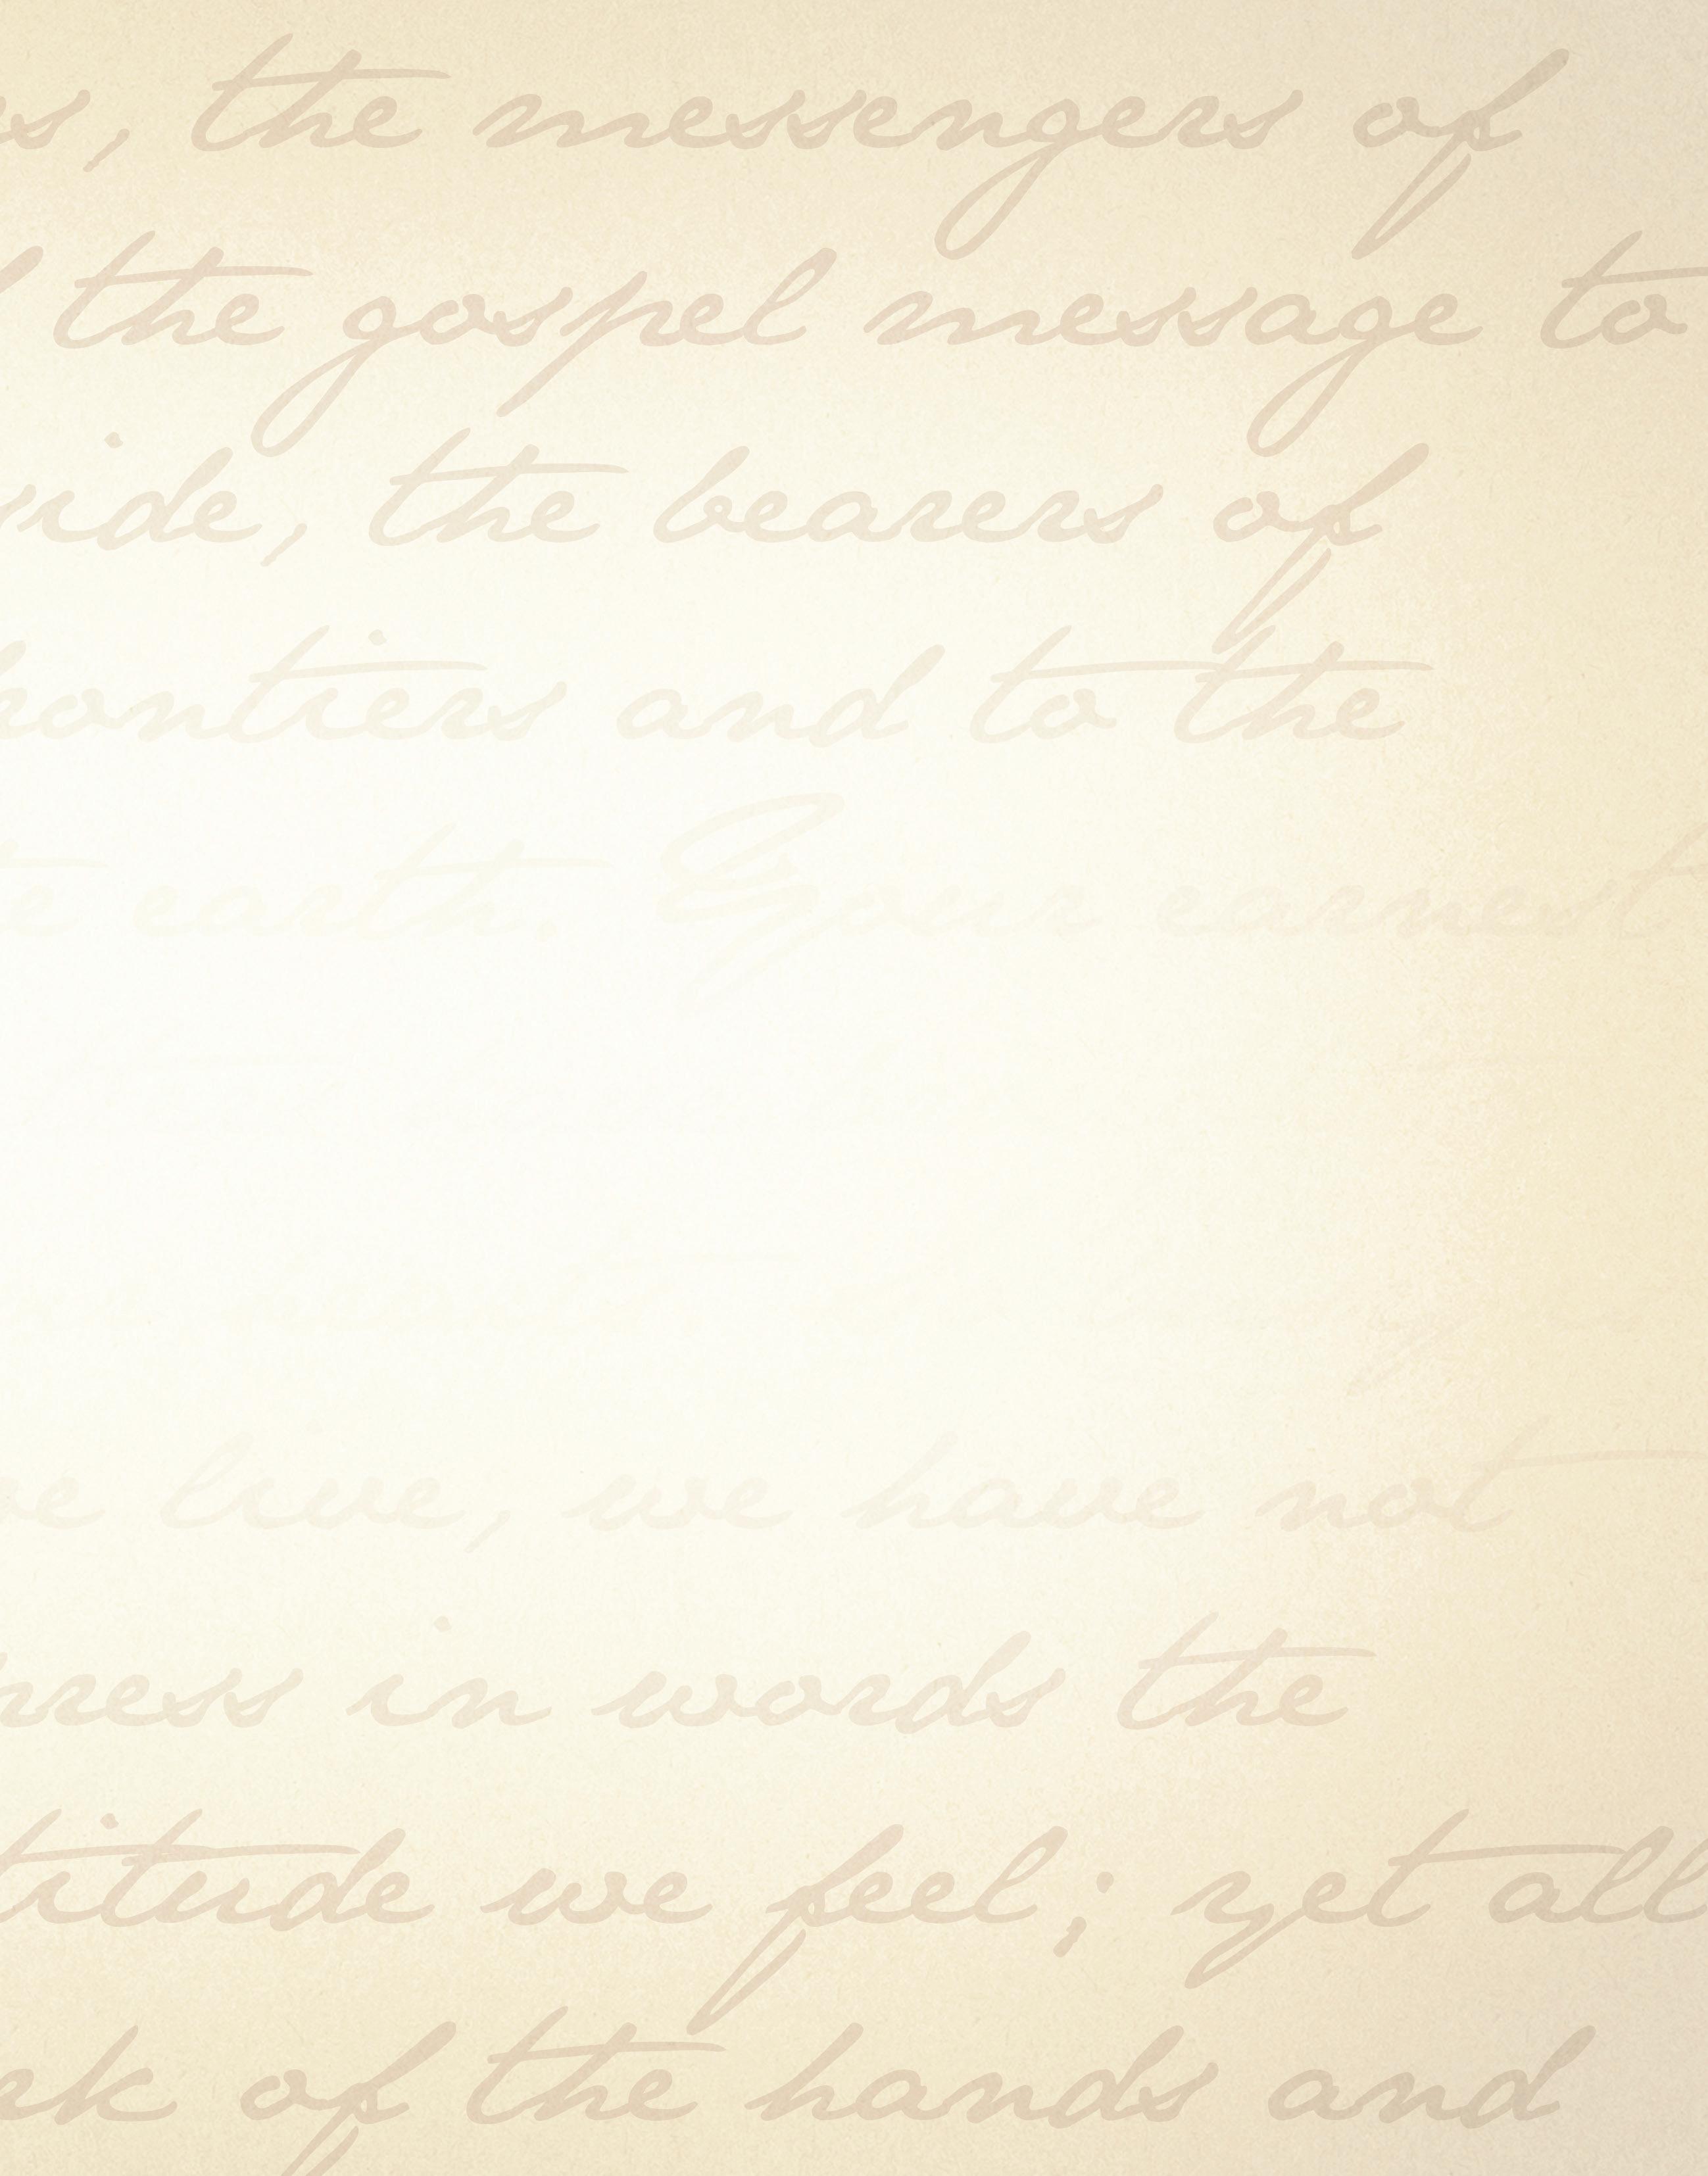 s, the messengers of
the gospel message to
ide, the bearers of
rontiers and to the
e earth. Your earnest
ve live, we have not
press in words the
titude we feel; yet all
ek of the hands and